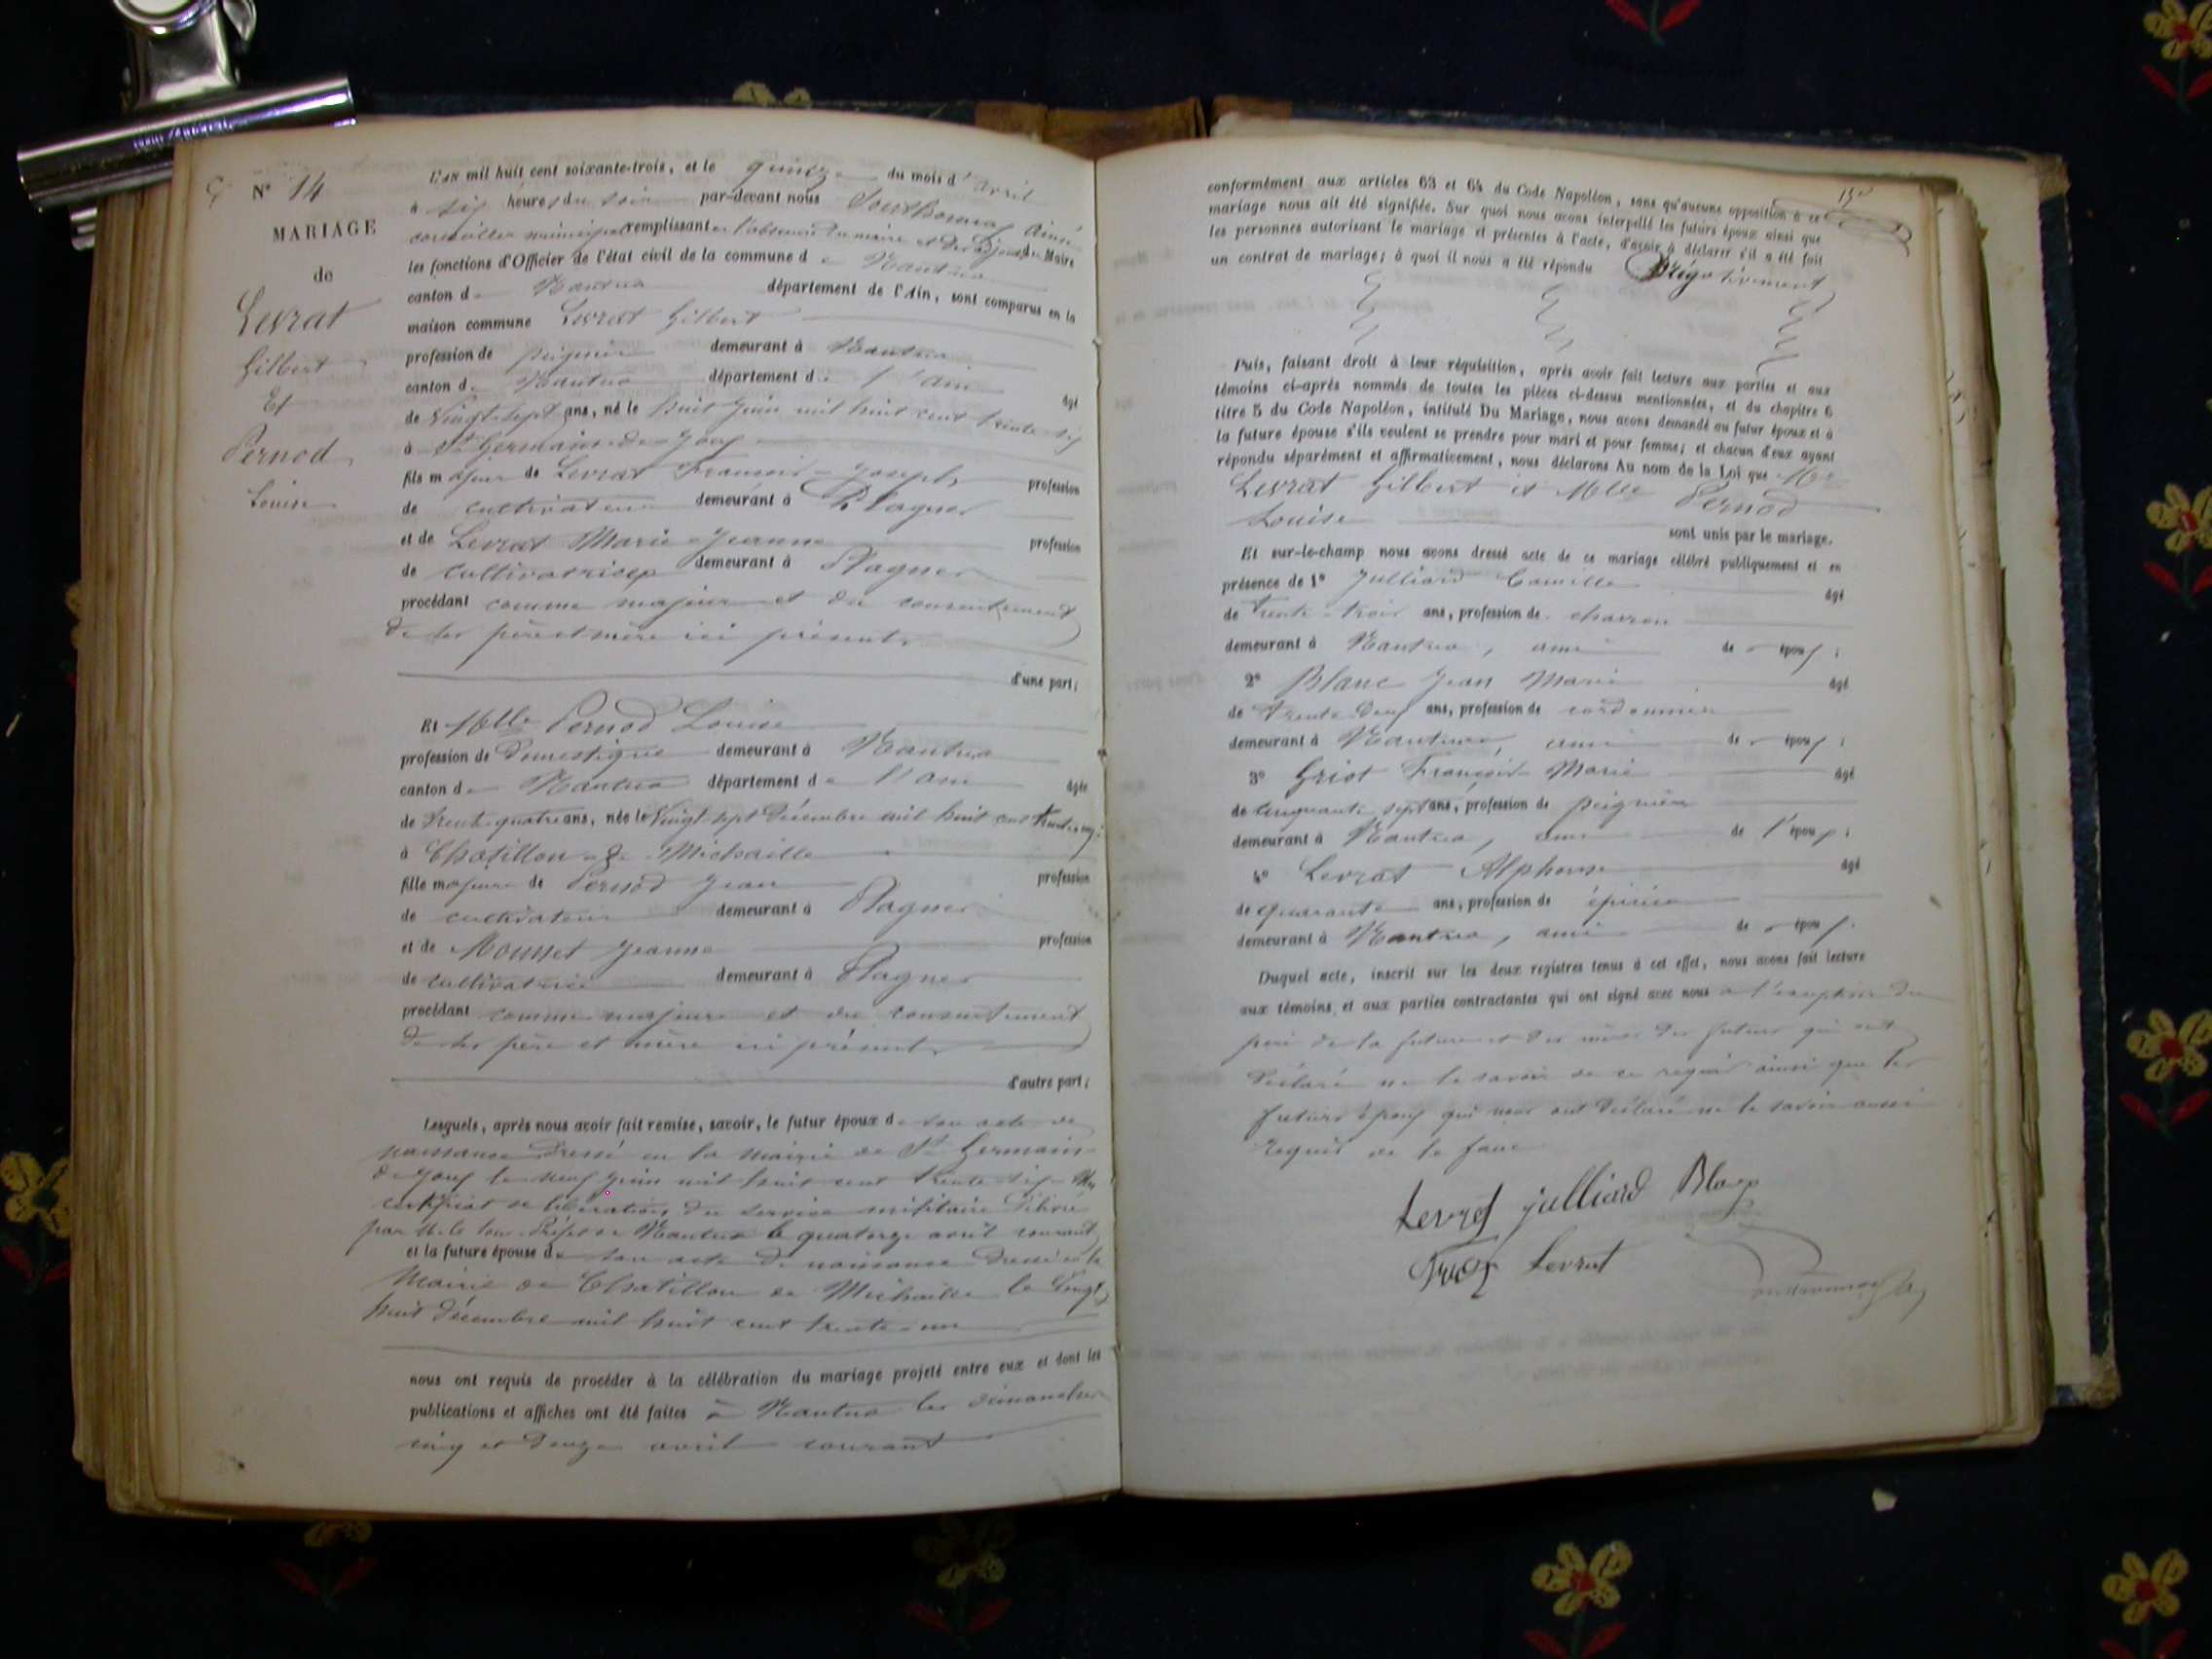 N° 14
MARIAGE
de
Levrat
Gilbert
Et
Pernod
Louise
L'AN mil huit cent soixante-trois, et le quinze du mois d'avril
à six heures du soir par-devant nous Southonnax Aimé
conseiller municipal remplissant en l'absence du maire et des adjoints du Maire
les fonctions d'Officier de l'état civil de la commune de Nantua
canton de Nantua département de l'Ain, sont comparus en la
maison commune Levrat Gilbert
profession de peignier demeurant à Nantua
canton de Nantua département de l'ain âgé
de Vingt-sept ans, né le huit Juin mil huit cent trente-six
à St Germain-de-Joux
fils majeur de Levrat François-Joseph profession
de cultivateur demeurant à Plagnes
et de Levrat Marie-Jeanne profession
de cultivatrice demeurant à Plagnes
procédant comme majeur et du consentement
de ses père et mère ici présents
d'une part;
Et Melle Pernod Louise
profession de Domestique demeurant à Nantua
canton de Nantua département de l'ain âgée
de Trente-quatre ans, née le Vingt-sept Décembre mil huit cent
à Chatillon-de-Michaille
fille majeure de Pernod Jean profession
de cultivateur demeurant à Plagnes
et de Mounet Jeanne profession
de cultivatrice demeurant à Plagnes
procédant comme majeure et du consentement
de ses père et mère ici présents
d'autre part;
Lesquels, après nous avoir fait remise, savoir, le futur époux de son acte de
naissance dressé en la mairie de St Germain-
de-Joux le neuf Juin mil huit cent trente-six - Un
certificat de libération du service militaire délivré
par M. le Sous-Préfet de Nantua le quatorze avril courant
et la future épouse de son acte de naissance dressé en la
Mairie de Chatillon de Michaille le Vingt
huit Décembre mil huit cent trente-un
nous ont requis de procéder à la célébration du mariage projeté entre eux et dont les
publications et affiches ont été faites à Nantua les dimanches
cinq et douze avril courant
conformément aux articles 63 et 64 du Code Napoléon, sans qu'aucune opposition à ce
mariage nous ait été signifiée. Sur quoi nous avons interpellé les futurs époux ainsi que
les personnes autorisant le mariage et présentes à l'acte, d'avoir à déclarer s'il a été fait
un contrat de mariage; à quoi il nous a été répondu Négativement
Puis, faisant droit à leur réquisition, après avoir fait lecture aux parties et aux
témoins ci-après nommés de toutes les pièces ci-dessus mentionnées, et du chapitre 6
titre 5 du Code Napoléon, intitulé Du Mariage, nous avons demandé au futur époux et à
la future épouse s'ils veulent se prendre pour mari et pour femme; et chacun d'eux ayant
répondu séparément et affirmativement, nous déclarons Au nom de la Loi que Mr
Levrat Gilbert et Melle Pernod
Louise sont unis par le mariage.
Et sur-le-champ nous avons dressé acte de ce mariage célébré publiquement et en
présence de 1° Julliard Camille âgé
de trente-trois ans, profession de charron
demeurant à Nantua, ami de époux;
2° Blanc Jean Marie âgé
de trente-deux ans, profession de cordonnier
demeurant à Nantua, ami de époux;
3° Griot François-Marie âgé
de cinquante-sept ans, profession de peignier
demeurant à Nantua, ami de l'époux;
4° Levrat Alphonse âgé
de quarante ans, profession de épicier
demeurant à Nantua, ami de époux.
Duquel acte, inscrit sur les deux registres tenus à cet effet, nous avons fait lecture
aux témoins et aux parties contractantes qui ont signé avec nous à l'exception du
père de la future et des mères des futurs qui ont
déclaré ne le savoir de ce requis ainsi que les
futurs époux qui nous ont déclaré ne le savoir aussi
requis de le faire
Levrat Julliard Blanc
Levrat